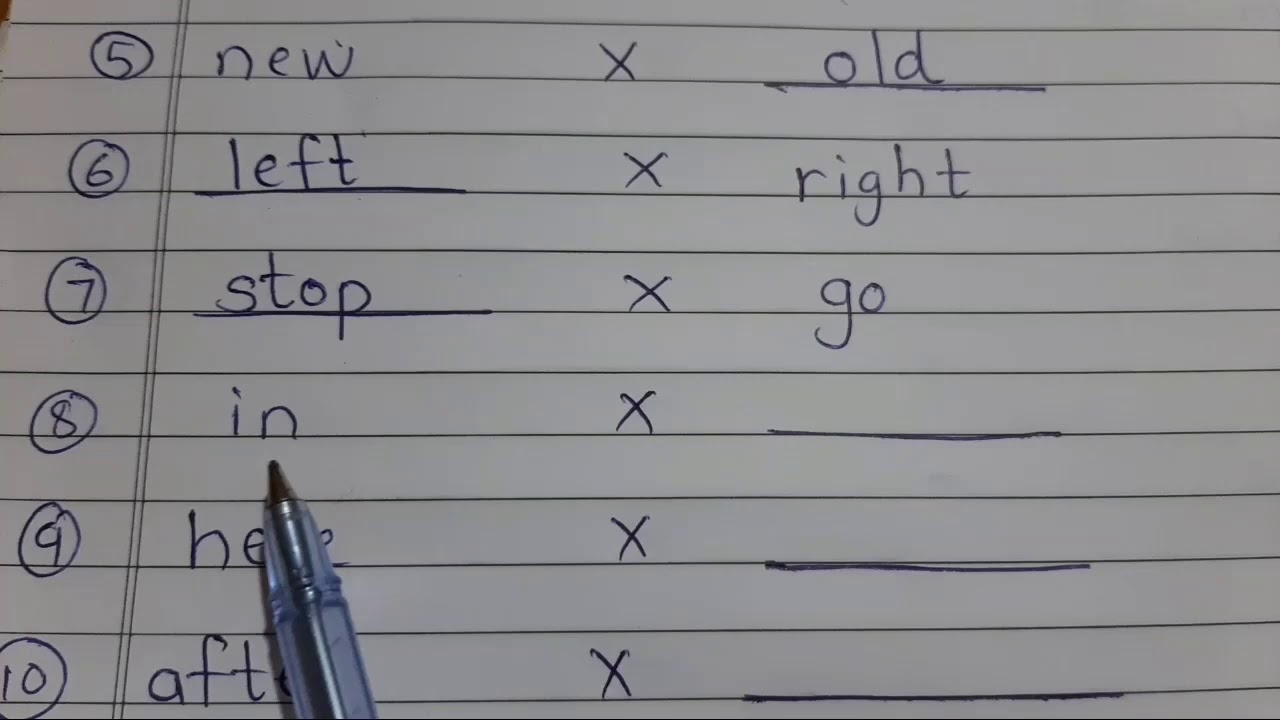 5 new X old
6 left X right
7 stop X go
8 in X
9 X
10 X